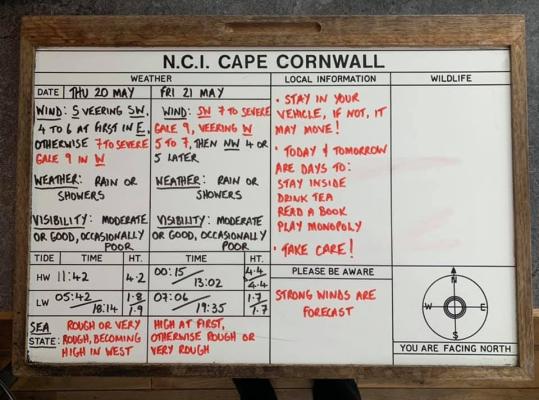 N.C.I. CAPE CORNWALL
WEATHER
DATE THU 20 MAY FRI 21 MAY
WIND: S VEERING SW,
4 TO 6 AT FIRST IN E,
OTHERWISE 7 TO SEVERE
GALE 9 IN W
WEATHER: RAIN OR
SHOWERS
VISIBILITY: MODERATE
OR GOOD, OCCASIONALLY
POOR
WIND: SW 7 TO SEVERE
GALE 9, VEERING W
5 TO 7, THEN NW 4 OR
5 LATER
WEATHER: RAIN OR
SHOWERS
VISIBILITY: MODERATE
OR GOOD, OCCASIONALLY
POOR
TIDE TIME HT. TIME HT.
HW 11:42 4.2 00:15/13:02 4.4/4.4
LW 05:42/18:14 1.8/1.9 07:06/19:35 1.7/1.7
SEA STATE:
ROUGH OR VERY
ROUGH, BECOMING
HIGH IN WEST
HIGH AT FIRST,
OTHERWISE ROUGH OR
VERY ROUGH
LOCAL INFORMATION
• STAY IN YOUR
VEHICLE, IF NOT, IT
MAY MOVE!
• TODAY & TOMORROW
ARE DAYS TO:
STAY INSIDE
DRINK TEA
READ A BOOK
PLAY MONOPOLY
• TAKE CARE!
PLEASE BE AWARE
STRONG WINDS ARE
FORECAST
WILDLIFE
N
W E
S
YOU ARE FACING NORTH